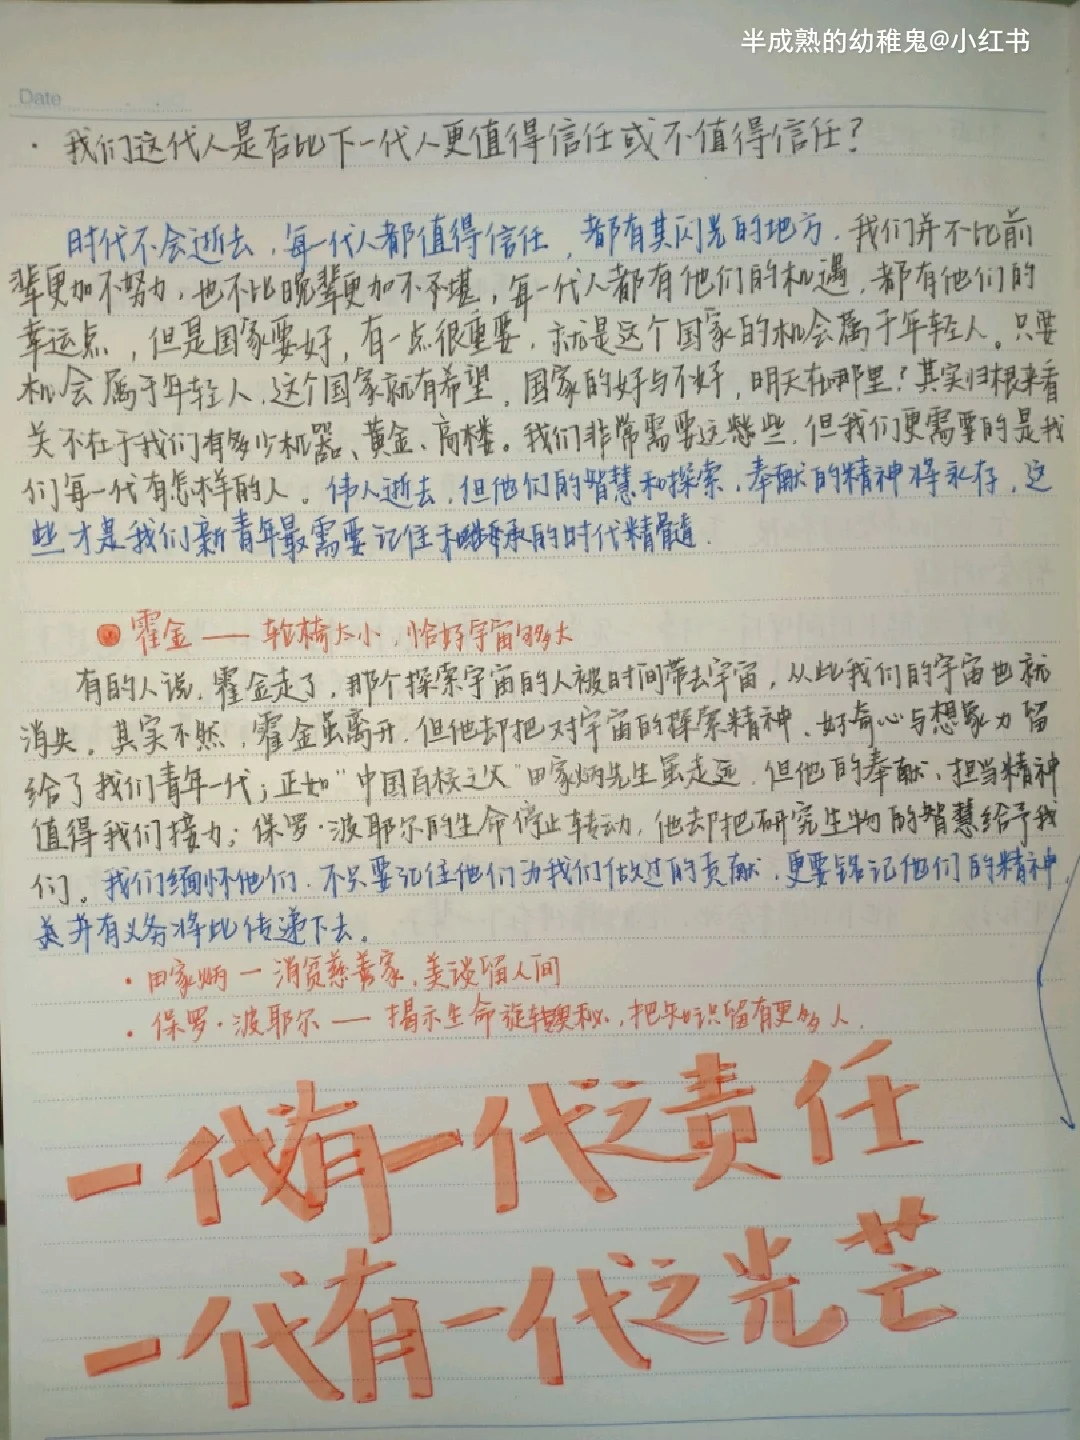 半成熟的幼稚鬼@小红书
Date
· 我们这代人是否比下一代人更值得信任或不值得信任？
时代不会逝去，每一代人都值得信任，都有其闪光的地方。我们并不比前
辈更加不努力，也不比晚辈更加不堪，每一代人都有他们的机遇，都有他们的
幸运点，但是国家要好，有一点很重要，就是这个国家的机会属于年轻人。只要
机会属于年轻人，这个国家就有希望，国家的好与不好，明天在哪里？其实归根来看
不在于我们有多少机器、黄金、高楼。我们非常需要这些，但我们更需要的是我
们每一代有怎样的人。伟人逝去，但他们的智慧和探索，奉献的精神将永存，这
些才是我们新青年最需要记住和继承的时代精髓。
霍金——轮椅大小，恰好宇宙够大
有的人说，霍金走了，那个探索宇宙的人被时间带去宇宙，从此我们的宇宙也就
消失。其实不然，霍金虽离开，但他却把对宇宙的探索精神、好奇心与想象力留
给了我们青年一代；正如“中国百校之父”田家炳先生虽走远，但他的奉献、担当精神
值得我们接力；保罗·波耶尔的生命停止转动，他却把研究生物的智慧给予我
们。我们缅怀他们，不只要记住他们为我们做过的贡献，更要铭记他们的精神，
并有义务将此传递下去。
· 田家炳一消贫慈善家，美谈留人间
· 保罗·波耶尔——揭示生命旋转奥秘，把知识留有更多人。
一代有一代之责任
一代有一代之光芒